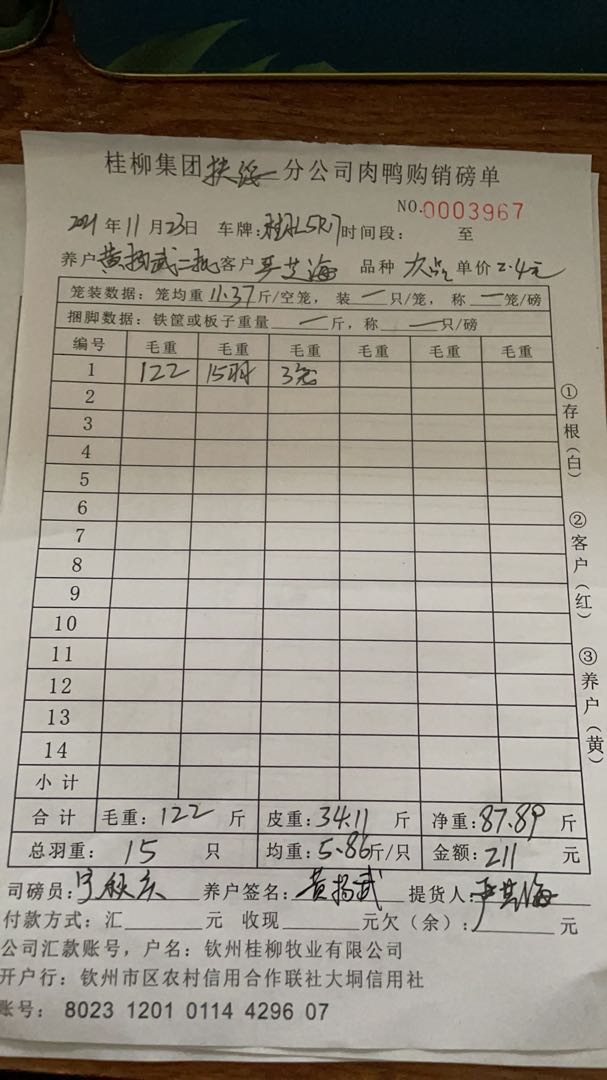 桂柳集团扶绥分公司肉鸭购销磅单
NO.0003967
2021年11月23日 车牌:桂L5R7时间段: 至
养户黄扬武二批客户严其海 品种 次品 单价2.4元
笼装数据:笼均重11.37斤/空笼,装一只/笼,称一笼/磅
捆脚数据:铁筐或板子重量一斤,称一只/磅
编号 毛重 毛重 毛重 毛重 毛重 毛重
1 122 15羽 3笼
2
3
4
5
6
7
8
9
10
11
12
13
14
小计
合计 毛重:122斤 皮重:34.11斤 净重:87.89斤
总羽重:15只 均重:5.86斤/只 金额:211元
司磅员: 养户签名:黄扬武 提货人:严其海
付款方式:汇 元 收现 元欠(余): 元
公司汇款账号,户名:钦州桂柳牧业有限公司
开户行:钦州市区农村信用合作联社大垌信用社
账号: 8023 1201 0114 4296 07
①存根(白)
②客户(红)
③养户(黄)